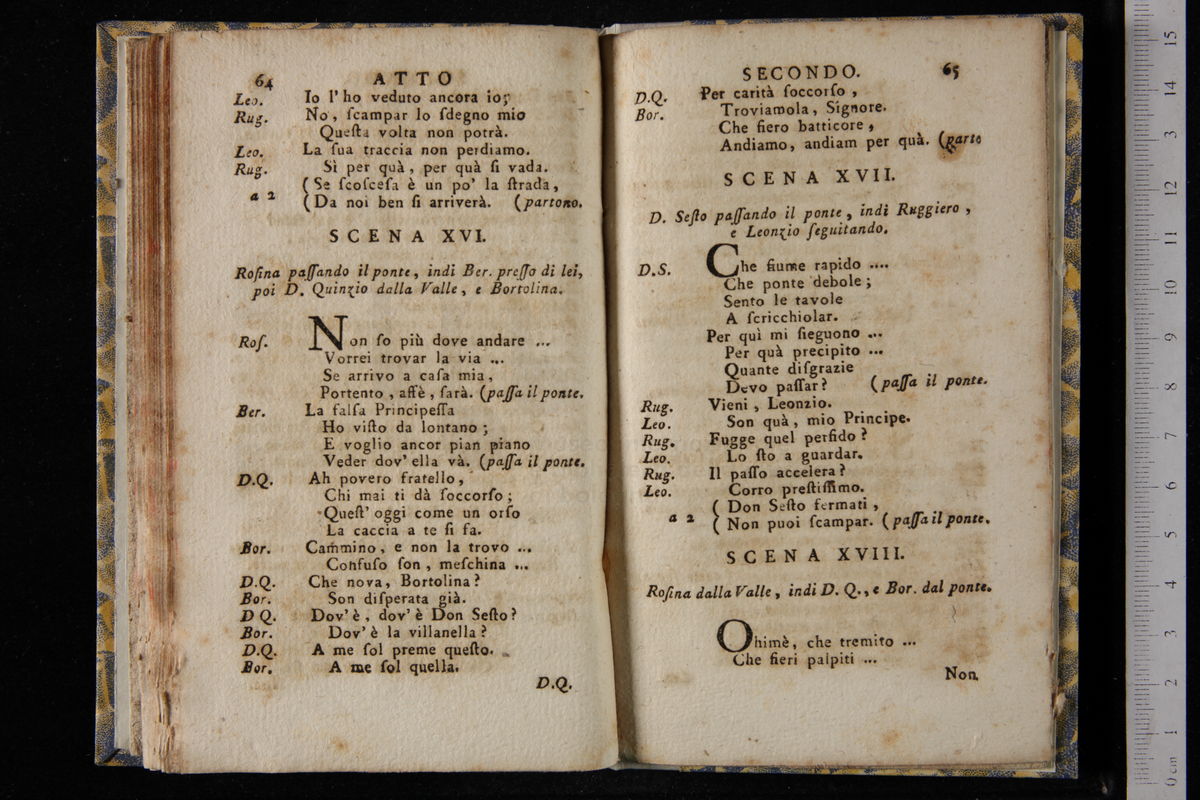 64 ATTO
Leo. Io l'ho veduto ancora io;
Rug. No, ſcampar lo ſdegno mio
Queſta volta non potrà.
Leo. La ſua traccia non perdiamo.
Rug. Sì per quà, per quà ſi vada.
a 2 (Se ſcoſceſa è un po' la ſtrada,
(Da noi ben ſi arriverà. (partono.
SCENA XVI.
Roſina paſſando il ponte, indi Ber. preſſo di lei,
poi D. Quinzio dalla Valle, e Bortolina.
Roſ. Non ſo più dove andare ...
Vorrei trovar la via ...
Se arrivo a caſa mia,
Portento, affè, ſarà. (paſſa il ponte.
Ber. La falſa Principeſſa
Ho viſto da lontano;
E voglio ancor pian piano
Veder dov' ella và. (paſſa il ponte.
D.Q. Ah povero fratello,
Chi mai ti dà ſoccorſo;
Queſt' oggi come un orſo
La caccia a te ſi fa.
Bor. Cammino, e non la trovo ...
Confuſo ſon, meſchina ...
D.Q. Che nova, Bortolina?
Bor. Son diſperata già.
D Q. Dov' è, dov' è Don Seſto?
Bor. Dov' è la villanella?
D.Q. A me ſol preme queſto.
Bor. A me ſol quella.
D.Q.
SECONDO. 65
D.Q. Per carità ſoccorſo,
Bor. Troviamola, Signore.
Che fiero batticore,
Andiamo, andiam per quà. (parte
SCENA XVII.
D. Seſto paſſando il ponte, indi Ruggiero,
e Leonzio ſeguitando.
D.S. Che fiume rapido ....
Che ponte debole;
Sento le tavole
A ſcricchiolar.
Per quì mi ſieguono ...
Per quà precipito ...
Quante diſgrazie
Devo paſſar? (paſſa il ponte.
Rug. Vieni, Leonzio.
Leo. Son quà, mio Principe.
Rug. Fugge quel perfido?
Leo. Lo ſto a guardar.
Rug. Il paſſo accelera?
Leo. Corro preſtiſſimo.
a 2 ( Don Seſto fermati,
( Non puoi ſcampar. (paſſa il ponte.
SCENA XVIII.
Roſina dalla Valle, indi D. Q., e Bor. dal ponte.
Ohimè, che tremito ...
Che fieri palpiti ...
Non
0 cm 1 2 3 4 5 6 7 8 9 10 11 12 13 14 15